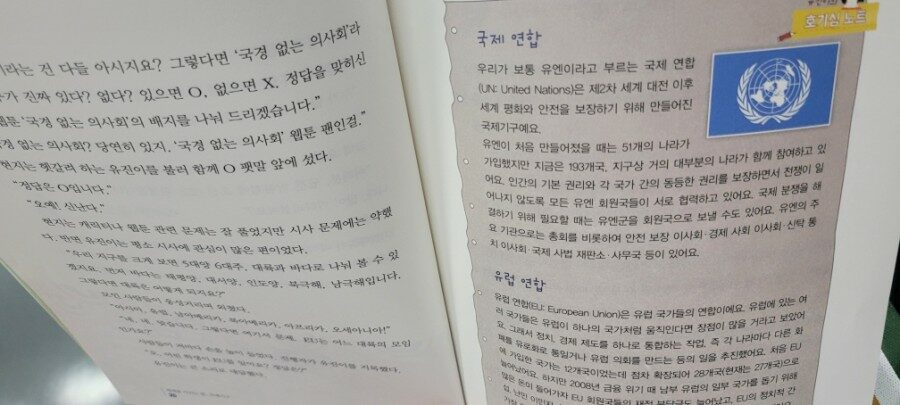 이라는 건 다들 아시지요? 그렇다면 '국경 없는 의사회'라
가 진짜 있다? 없다? 있으면 O, 없으면 X. 정답을 맞히신
웹툰 '국경 없는 의사회'의 배지를 나눠 드리겠습니다."
경 없는 의사회? 당연히 있지, '국경 없는 의사회' 웹툰 팬인걸."
현지는 헷갈려 하는 유진이를 불러 함께 O 팻말 앞에 섰다.
"정답은 O입니다."
"오예! 신난다."
현지는 캐릭터나 웹툰 관련 문제는 잘 풀었지만 시사 문제에는 약했
다. 반면 유진이는 평소 시사에 관심이 많은 편이었다.
"우리 지구를 크게 보면 5대양 6대주, 대륙과 바다로 나눠 볼 수 있
겠지요. 먼저 바다는 태평양, 대서양, 인도양, 북극해, 남극해입니다.
그렇다면 대륙은 어떻게 되지요?"
모인 사람들이 웅성거리며 외쳤다.
"아시아, 유럽, 남아메리카, 북아메리카, 아프리카, 오세아니아!"
"네, 네, 맞습니다. 그렇다면 여기서 문제, EU는 어느 대륙의 모임
인가요?"
호기심 노트
국제 연합
우리가 보통 유엔이라고 부르는 국제 연합
(UN: United Nations)은 제2차 세계 대전 이후
세계 평화와 안전을 보장하기 위해 만들어진
국제기구예요.
유엔이 처음 만들어졌을 때는 51개의 나라가
가입했지만 지금은 193개국, 지구상 거의 대부분의 나라가 함께 참여하고 있
어요. 인간의 기본 권리와 각 국가 간의 동등한 권리를 보장하면서 전쟁이 일
어나지 않도록 모든 유엔 회원국들이 서로 협력하고 있어요. 국제 분쟁을 해
결하기 위해 필요할 때는 유엔군을 회원국으로 보낼 수도 있어요. 유엔의 주
요 기관으로는 총회를 비롯하여 안전 보장 이사회·경제 사회 이사회·신탁 통
치 이사회·국제 사법 재판소·사무국 등이 있어요.
유럽 연합
유럽 연합(EU: European Union)은 유럽 국가들의 연합이에요. 유럽에 있는 여
러 국가들은 유럽이 하나의 국가처럼 움직인다면 장점이 많을 거라고 보았어
요. 그래서 정치, 경제 제도를 하나로 통합하는 작업, 즉 각 나라마다 다른 화
폐를 유로화로 통일하거나 유럽 의회를 만드는 등의 일을 추진했어요. 처음 EU
에 가입한 국가는 12개국이었는데 점차 확장되어 28개국(현재는 27개국)으로
늘어났어요. 하지만 2008년 금융 위기 때 남부 유럽의 일부 국가를 돕기 위해
많은 돈이 들어가자 EU 회원국들의 재정 부담도 늘어났고, EU의 정치적 간